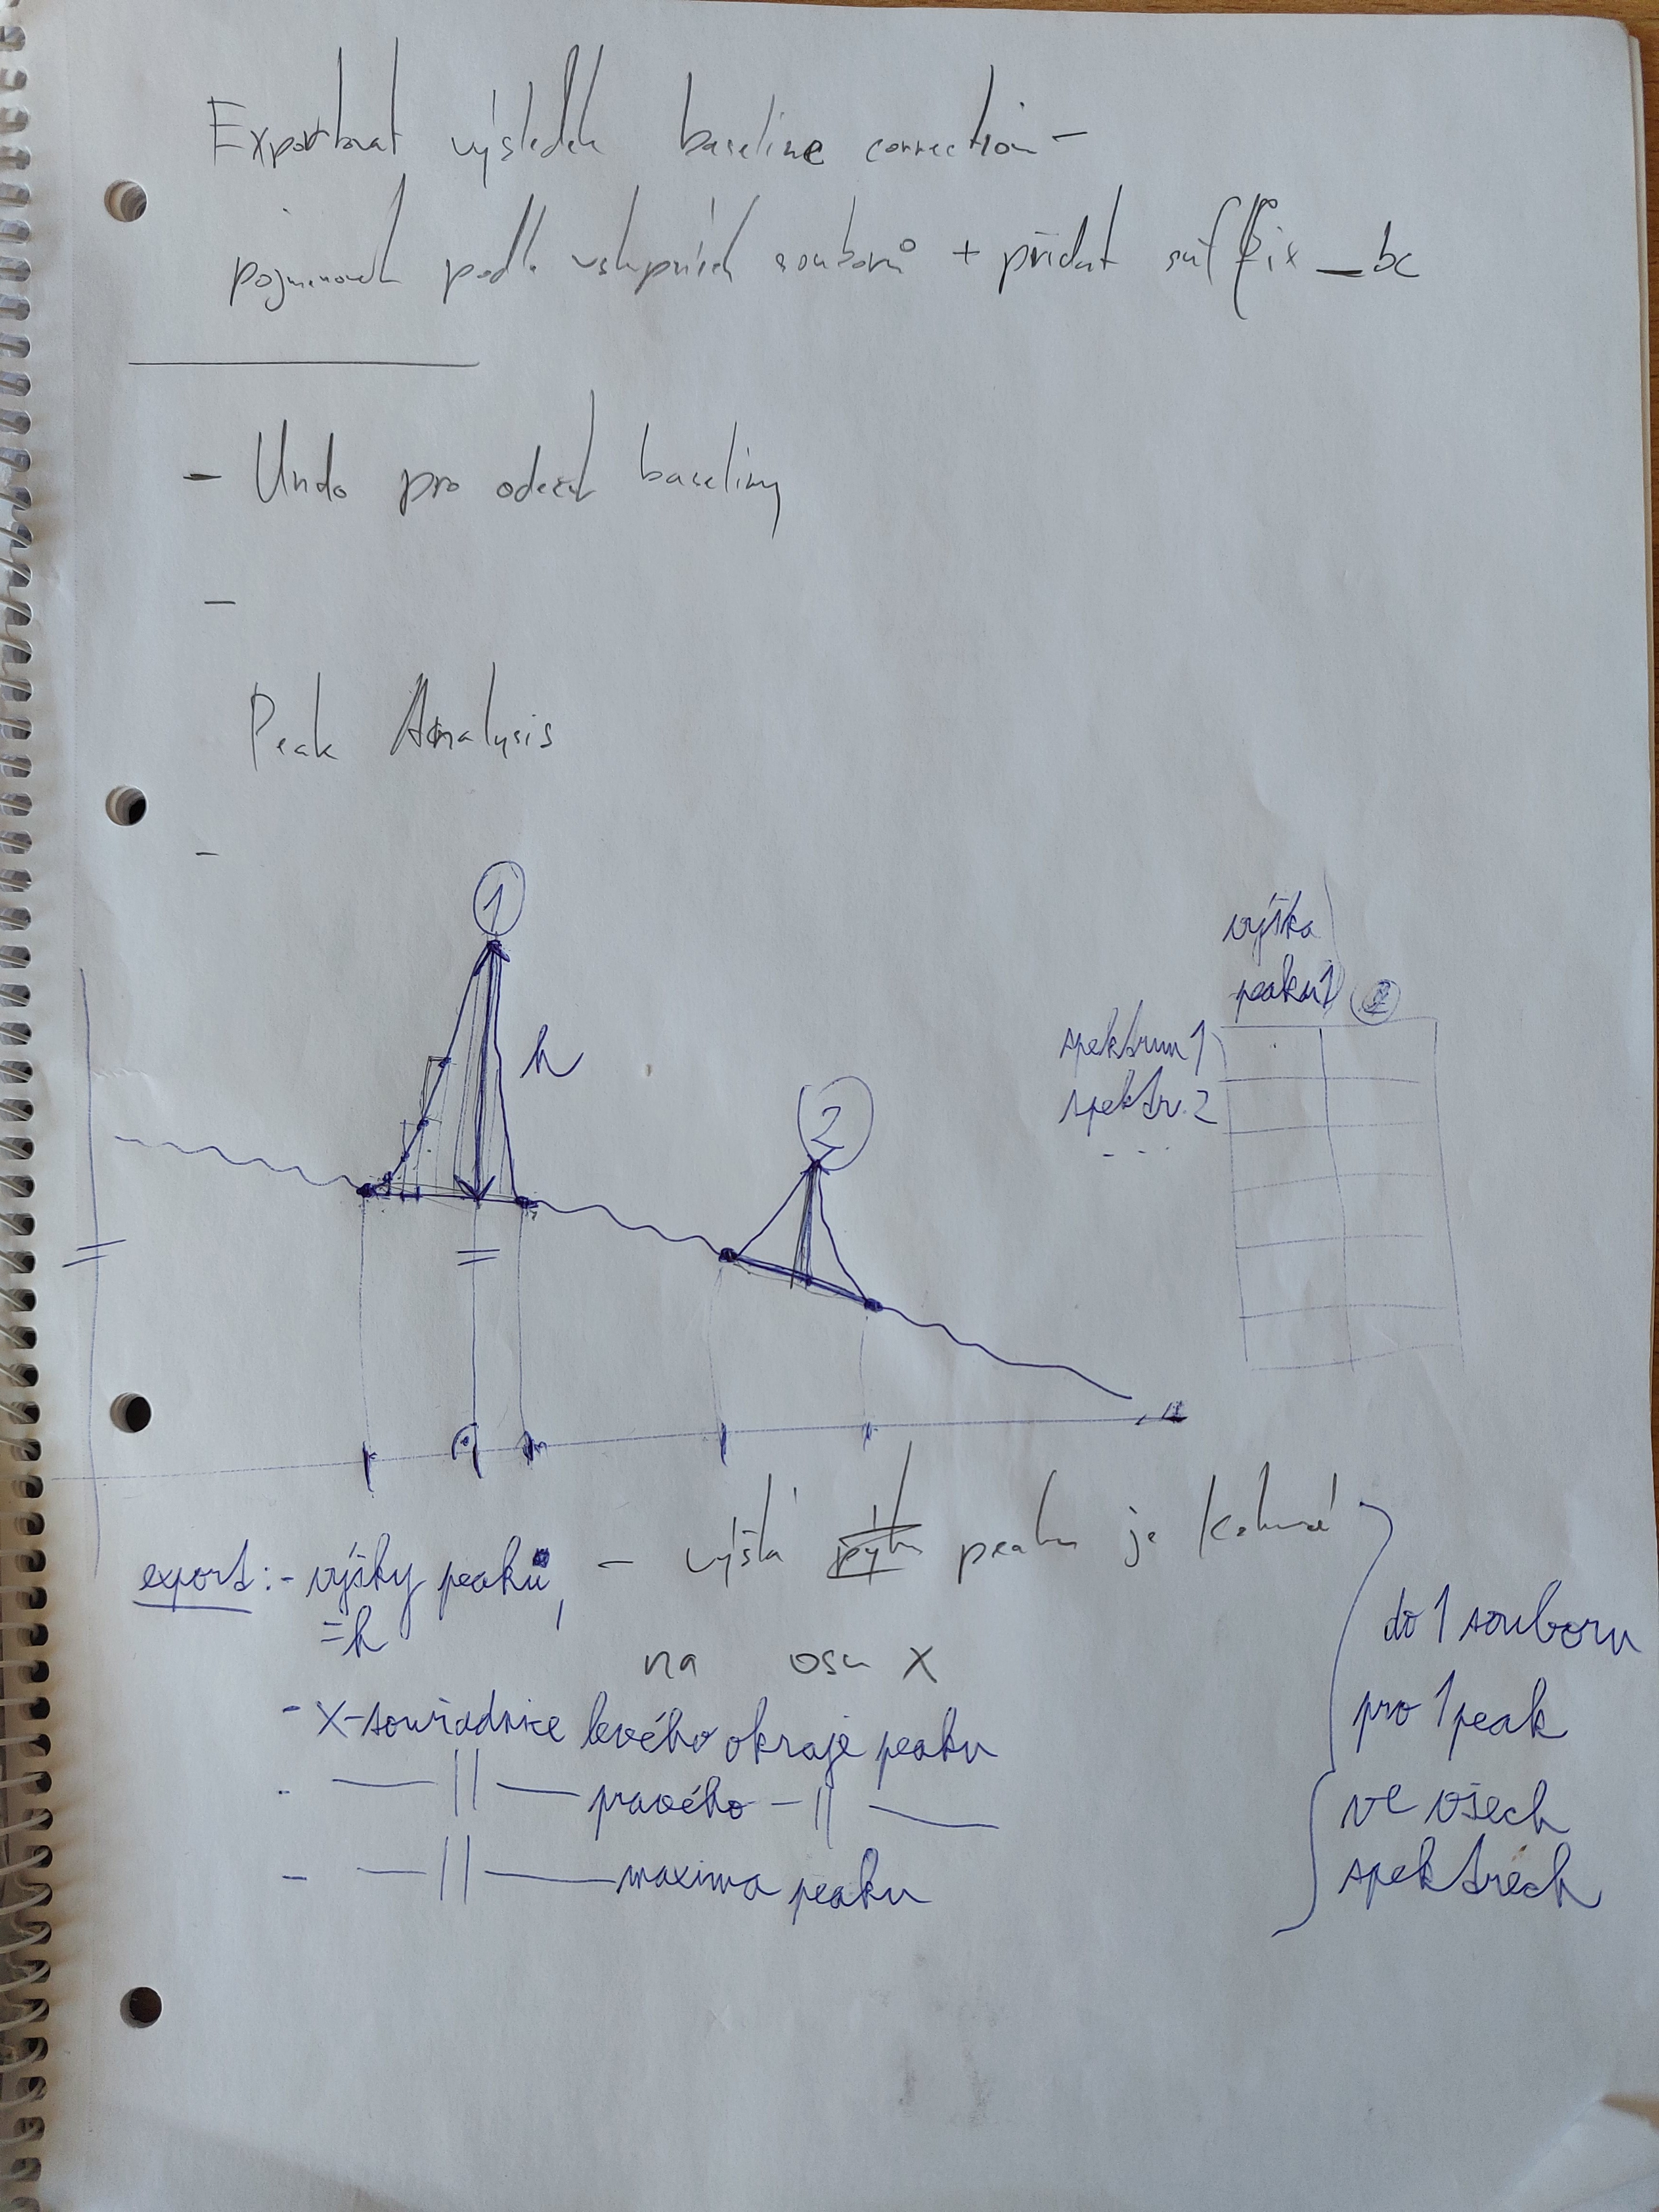 Exportovat výsledek baseline correction -
pojmenovat podle vstupních souborů + přidat suffix _bc
- Undo pro odečet baseliny
-
Peak Analysis
-
1
h
2
výška
peaku 1 2
spektrum 1
spektr. 2
...
export: - výšky peaků, - výška peaku je kolmá
= h
na osu x
- x-souřadnice levého okraje peaku
- —||— pravého —||—
- —||— maxima peaku
do 1 souboru
pro 1 peak
ve všech
spektrech